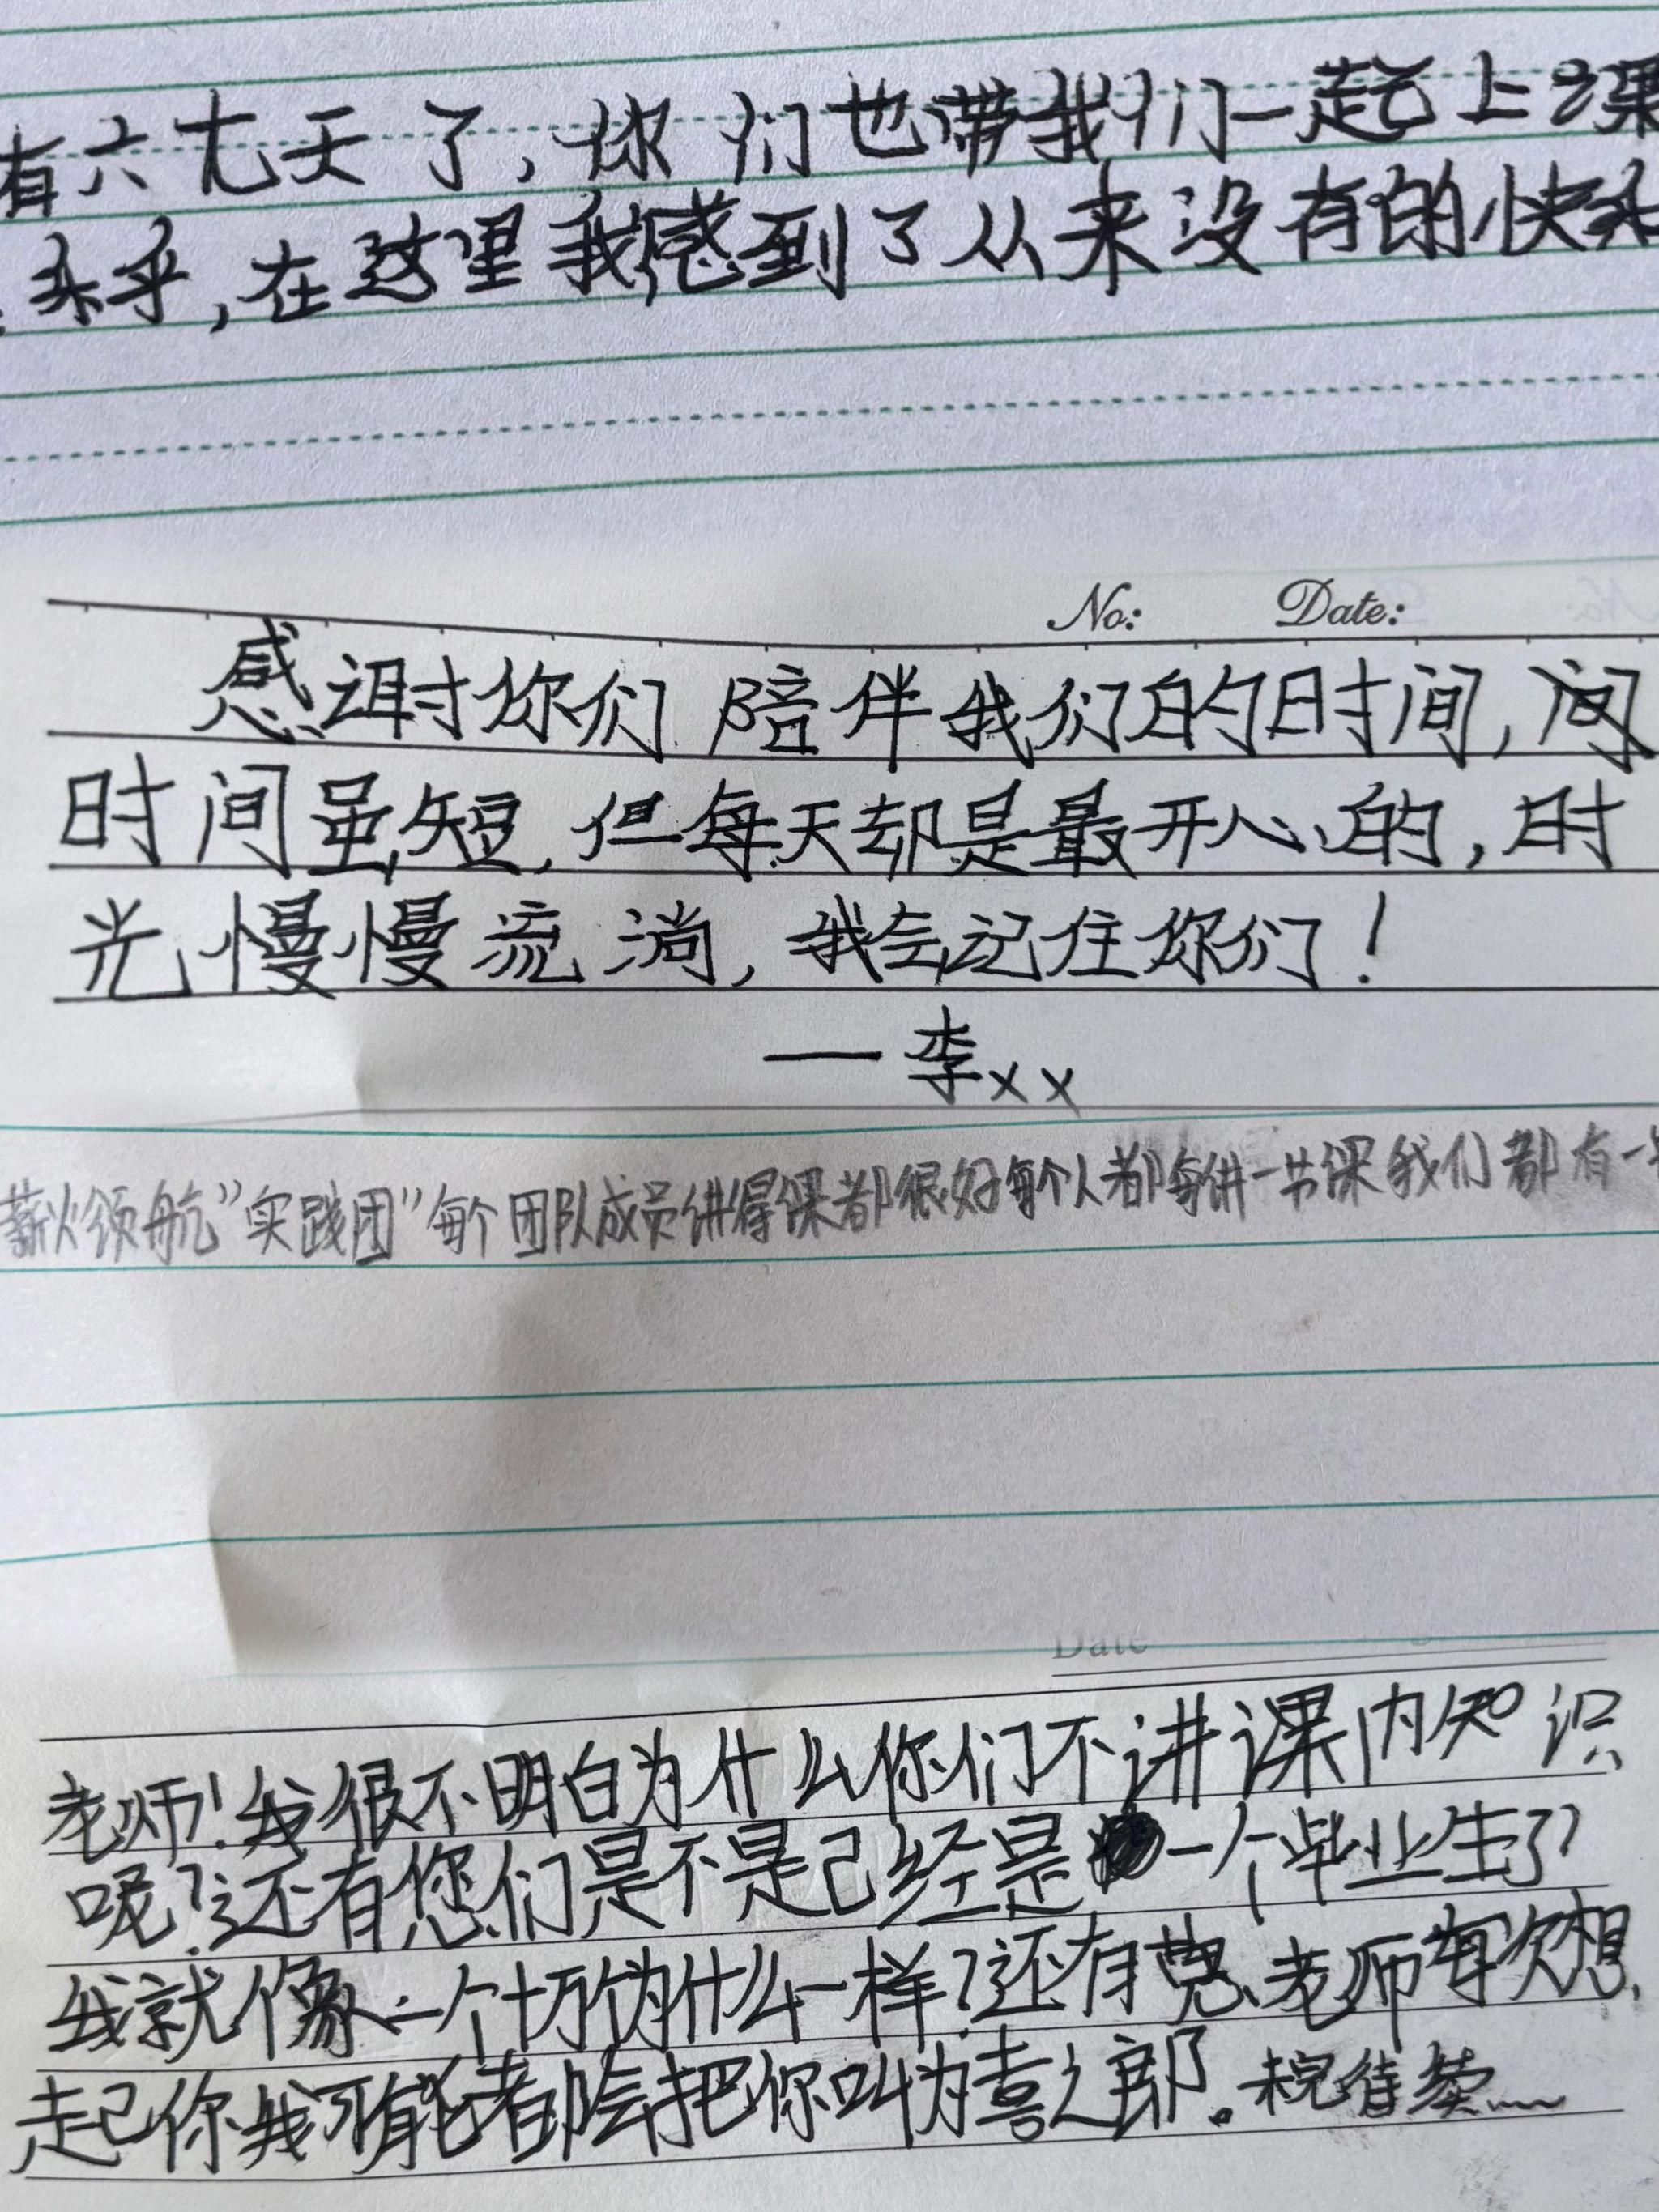 有六七天了,你们也带我们一起上课
在这里我感到了从来没有的快乐
No: Date:
感谢你们陪伴我们的时间,
时间虽短,但每天却是最开心的,时
光慢慢流淌,我会记住你们!
—李xx
薪火领航”实践团”每个团队成员讲得课都很好每个人都每讲一节课我们都有一
Date
老师!我很不明白为什么你们不讲课内知识
呢?还有您们是不是已经是一个毕业生了?
我就像一个十万个为什么一样?还有 老师每次想
起你我可能都会把你叫为喜之郎。未完待续……